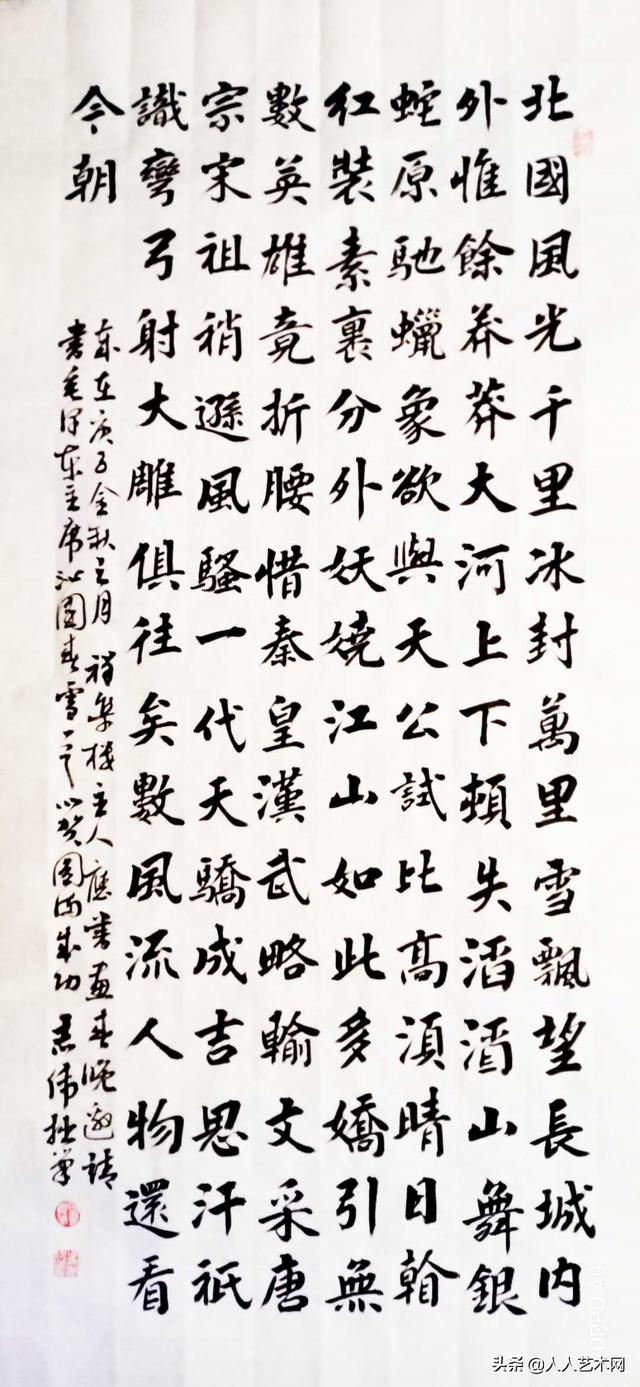 北國風光千里冰封萬里雪飄望長城内
外惟餘莽莽大河上下頓失滔滔山舞銀
蛇原馳蠟象欲與天公試比高須晴日翰
紅裝素裹分外妖嬈江山如此多嬌引無
數英雄竟折腰惜秦皇漢武略輸文采唐
宗宋祖稍遜風騷一代天驕成吉思汗祇
識彎弓射大雕俱往矣數風流人物還看
今朝
在庚子金秋之月 樓主人應書畫春晚邀請
書毛泽东主席沁園春雪一首以贺圆满成功 志伟拙筆
OPPO A9
头条 @人人艺术网